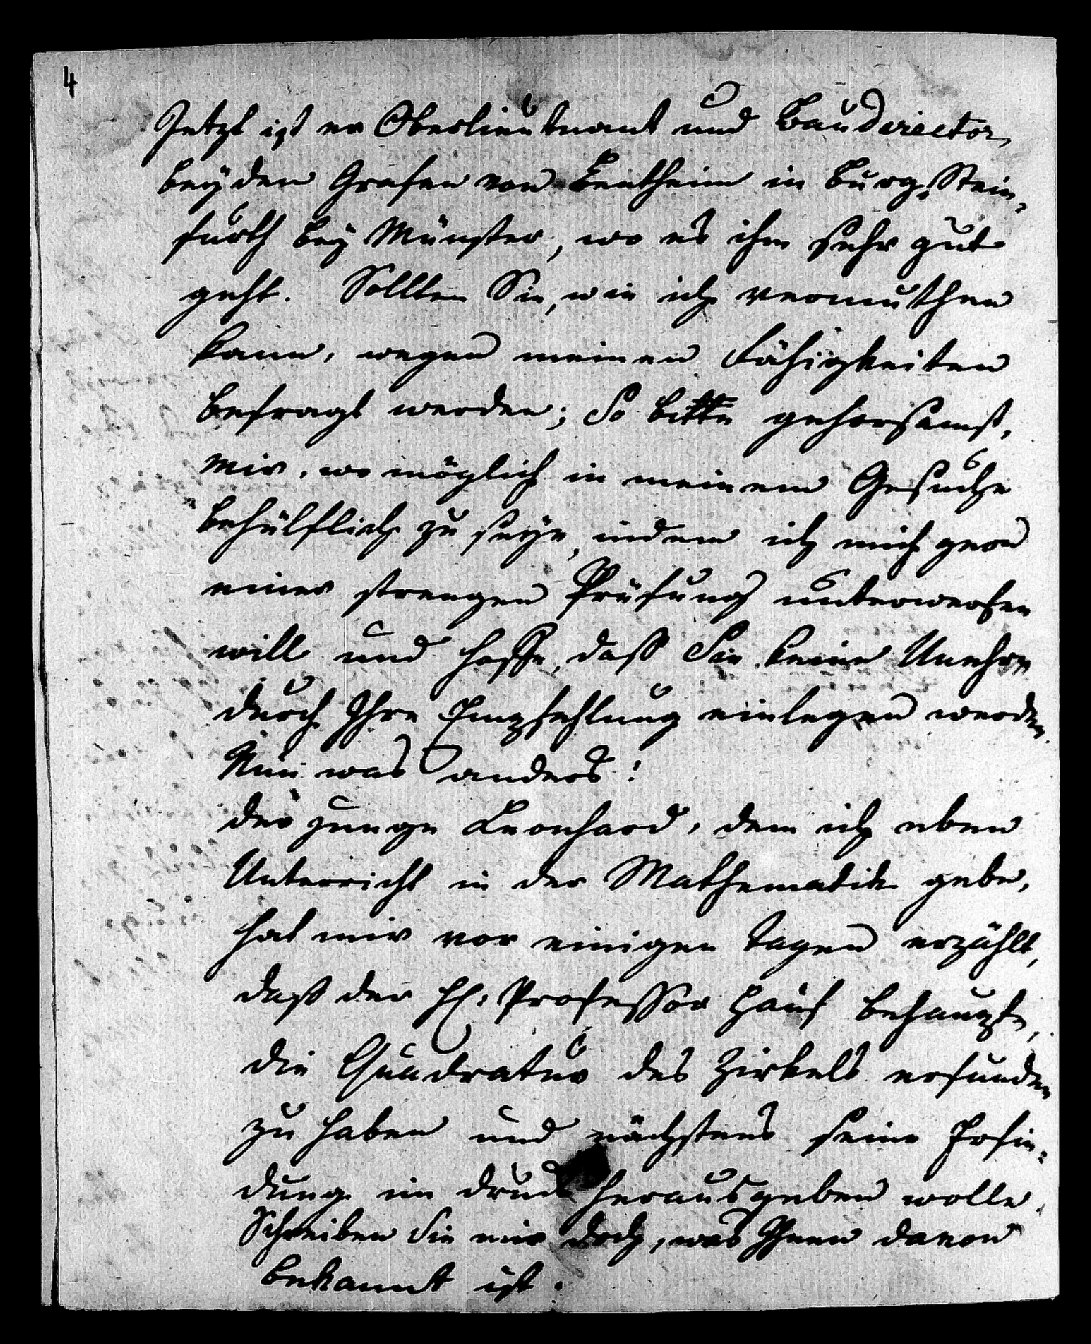 4
Jetzt ist er Oberlieutnant und Baudirector,
bey dem Grafen von Bentheim in Burg Stein-
furth bey Münster, wo es ihm sehr gut
geht. Sollten Sie, wie ich vermuthen
kann, wegen meinen Fähigkeiten
befragt werden; So bitte gehorsamst,
mir, wo möglich in meinem Gesuche
behülflich zu seyn, indem ich mich gern
einer strengen Prüfung unterwerfen
will und hoffe, daß Sie keine Unehre
durch Ihre Empfehlung einlegen werden.
Nun was anders!
der junge Leonhard, dem ich eben
Unterricht in der Mathematik gebe,
hat mir vor einigen Tagen erzählt,
daß der H: Professor Hauf behaupte,
die Quadratur des Zirkels erfunden
zu haben und nächstens seine Erfin-
dung im druck herausgeben wolle.
Schreiben Sie mir doch, was Ihnen davon
bekannt ist.